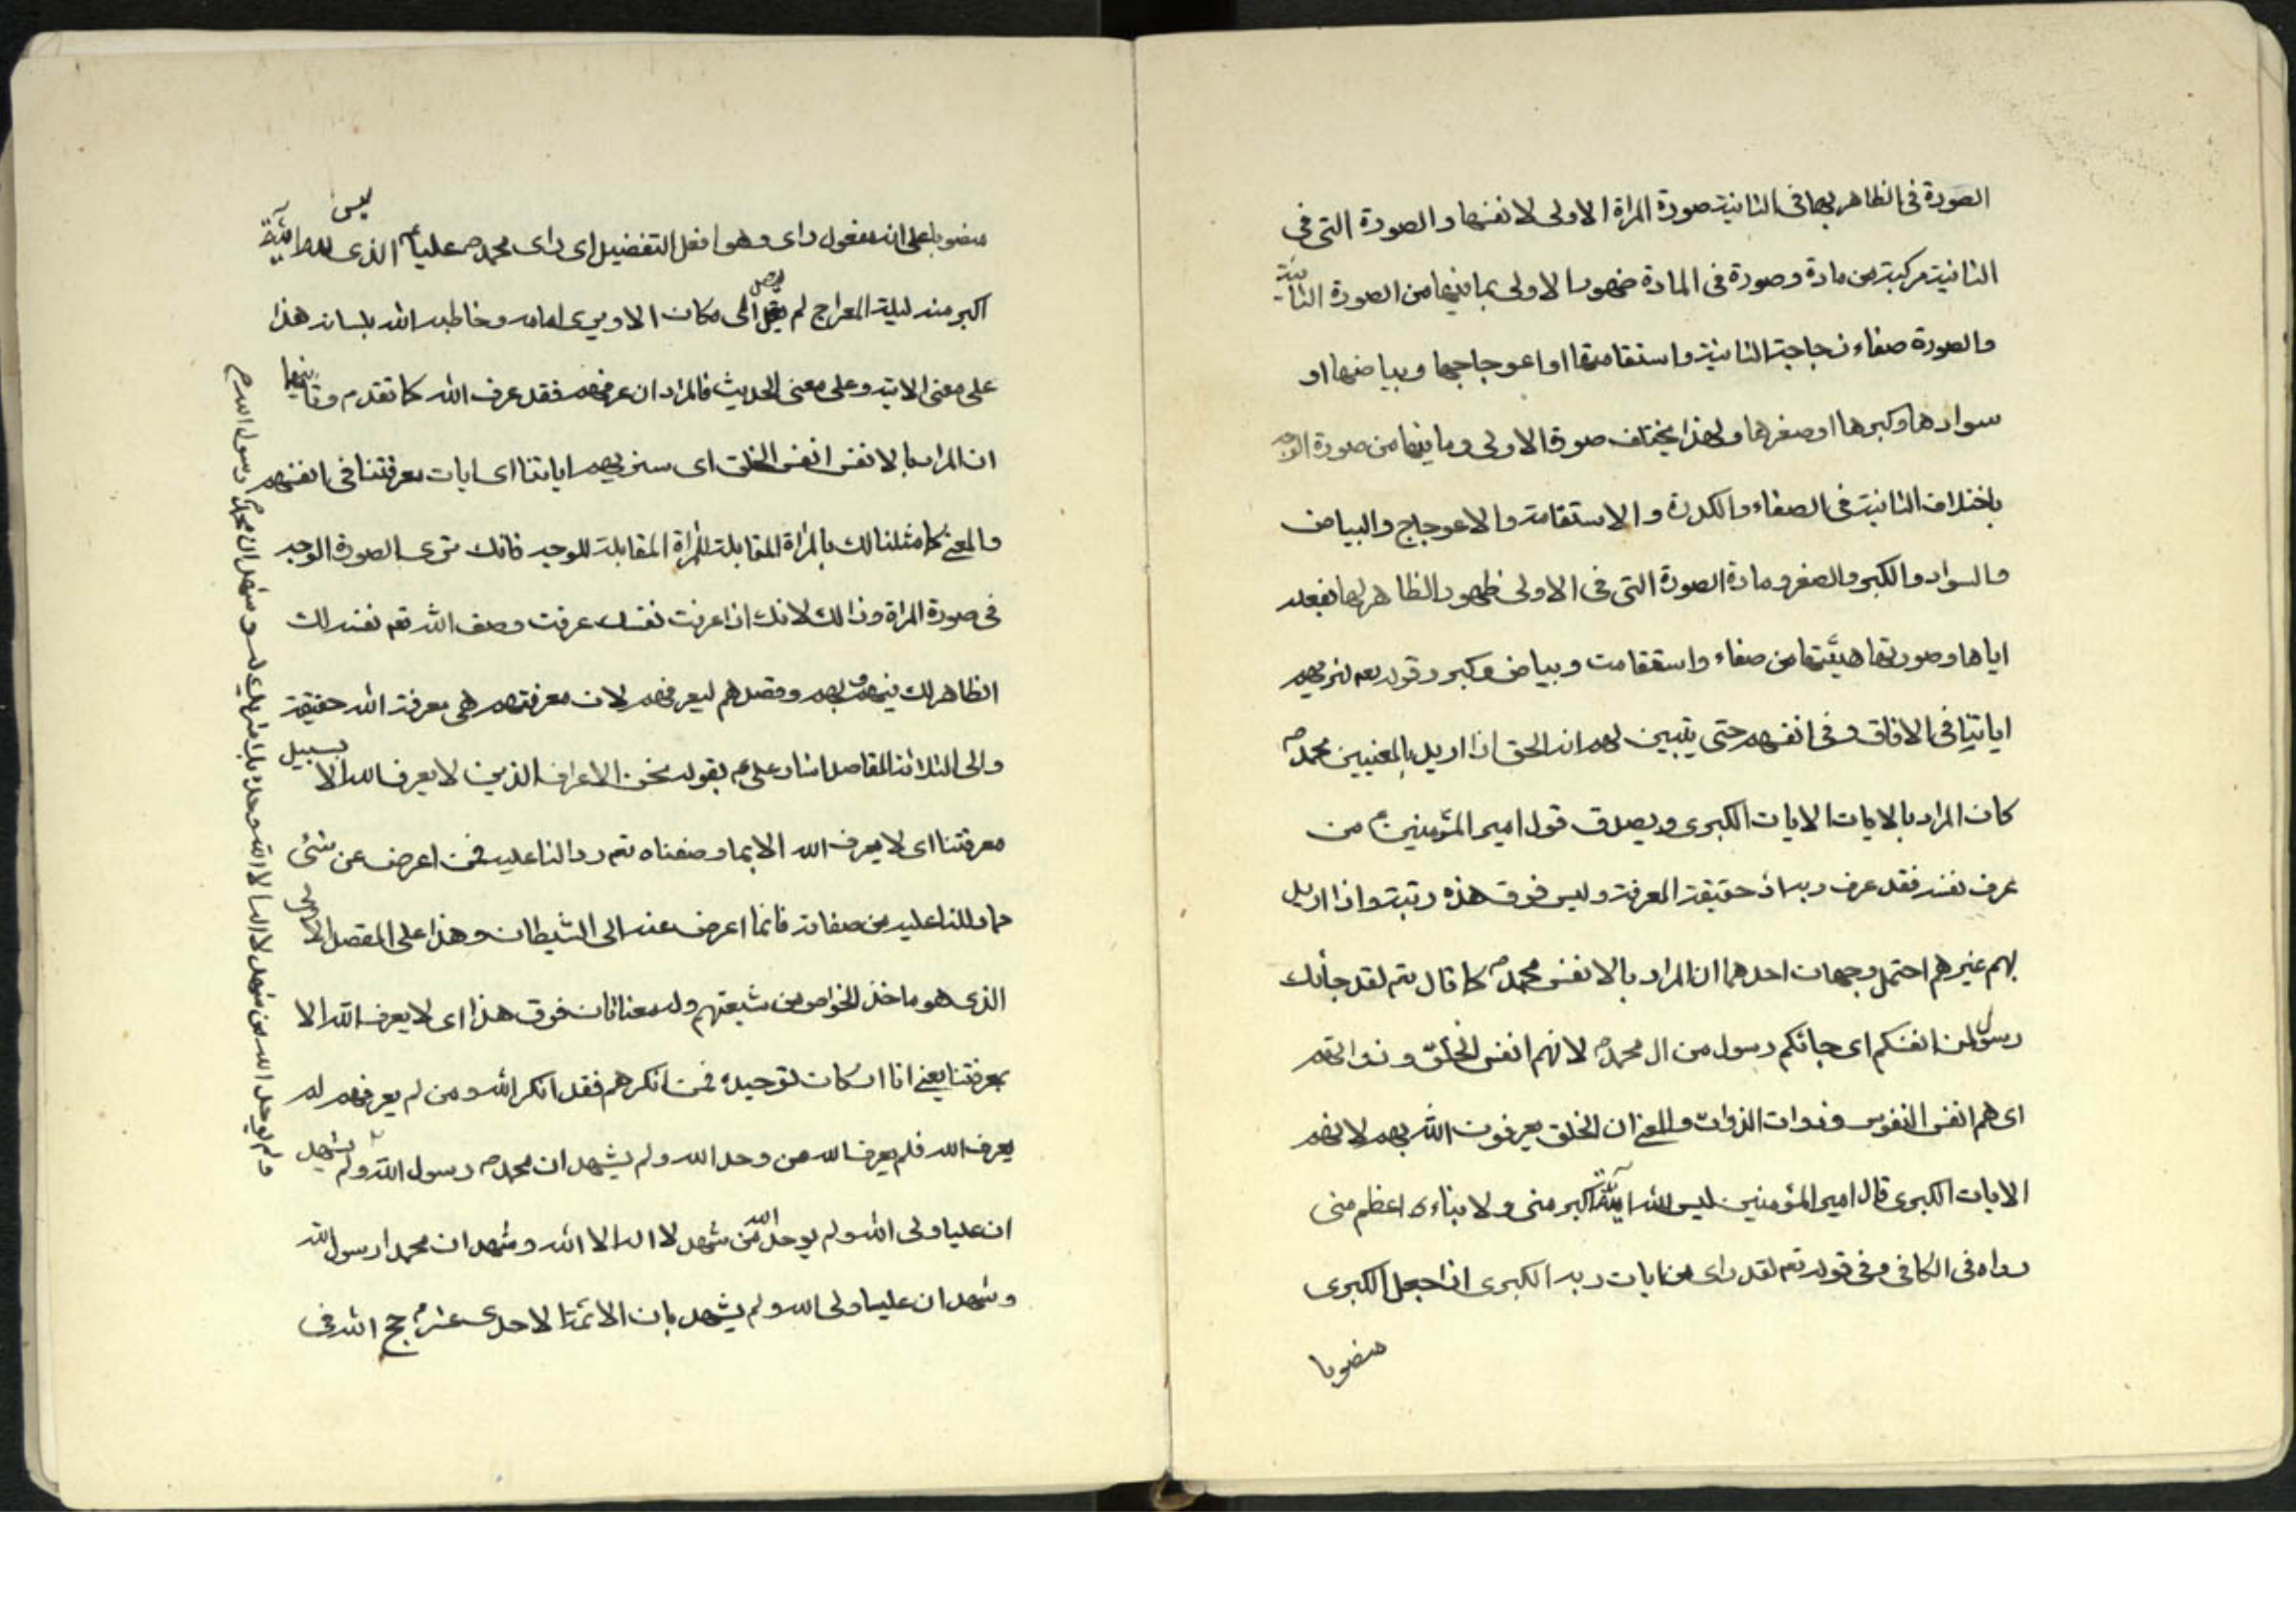 الصورة فی الظاهر بها فی الثانیة صورة المراة الاولی لا نفسها و الصورة التی فی
الثانیة مرکبة من مادة و صورة فی المادة ظهور الاولی بما فیها من الصورة الثانیة
والصورة صفاء زجاجة الثانیة و استقامتها او اعوجاجها و بیاضها او
سوادها و کبرها او صغرها و لهذا یختلف صورة الاولی و ما فیها من صورة الوجه
باختلاف الثانیة فی الصفاء و الکدرة و الاستقامة و الاعوجاج و البیاض
و السواد و الکبر و الصغر و مادة الصورة التی فی الاولی ظهور الظاهر لها بفعله
ایاها و صورتها هیئتها من صفاء و استقامت و بیاض و کبر و قوله تعم سنریهم
ایاتنا فی الافاق و فی انفسهم حتی یتبین لهم انه الحق اذا ارید بالمعنیین محمدص
کان المراد بالایات الایات الکبری و یصدق قول امیر المؤمنین ع من
عرف نفسه فقد عرف ربه اذ حقیقة المعرفة و لیس فوق هذه رتبة و اذا ارید
بهم غیرهم احتمل وجهان احدهما ان المراد بالانفس محمدص کما قال تعم لقد جائک
رسول من انفسکم ای جائکم رسول من ال محمدص لانهم انفس الخلق و ذواتهم
ای هم انفس النفوس و ذوات الذوات و المعنی ان الخلق یعرفون الله بهم لانهم
الایات الکبری قال امیر المؤمنین لیس لله ایة اکبر منی و لا نباء اعظم منی
رواه فی الکافی و فی قوله تعم لقد رای من ایات ربه الکبری اذا جعل الکبری
منصوبا
منصوبا علی انه مفعول رای و هو افعل التفضیل ای رای محمدص علیا ع الذی لیس لله ایة
اکبر منه لیلة المعراج لم یصل الی مکان الا و یری امامه و خاطبه الله بلسانه هذا
علی معنی الایة و علی معنی الحدیث فالمراد ان عرفهم فقد عرف الله کما تقدم و ثانیهما
ان المراد بالانفس انفس الخلق ای سنریهم ایاتنا ای ایات معرفتنا فی انفسهم
و المعنی کما مثلنا لک بالمراة المقابلة للمراة المقابلة للوجه فانک تری الصورة الوجه
فی صورة المراة و ذالک لانک اذا عرفت نفسک عرفت وصف الله تعم نفسه لک
الظاهر لک فیهم و بهم و مقصدهم لیعرفهم لان معرفتهم هی معرفة الله حقیقة
و الی الثلاثة المقاصد اشار علی ع بقوله نحن الاعراف الذین لا یعرف الله الا بسبیل
معرفتنا ای لا یعرف الله الا بما وصفناه تعم و دالنا علیه فمن اعرض عن شئ
مما دللنا علیه من صفاته فانما اعرض عنه الی الشیطان و هذا علی المقصد
الذی هو ماخذ الخواص من شیعتهم و له معنا ثان فوق هذا ای لا یعرف الله الا
بمعرفتنا یعنی انا ارکان توحیده فمن انکرهم فقد انکر الله و من لم یعرفهم لم
یعرف الله فلم یعرف الله من وحد الله و لم یشهد ان محمدص رسول الله و لم یشهد
ان علیا ولی الله و لم یوحد الله من شهد لا اله الا الله و شهد ان محمدا رسول الله
و شهد ان علیا ولی الله و لم یشهد بان الائمة الاحدی عشر ع حجج الله فی
و لم یوحد الله من شهد لا اله الا الله وحده لا شریک له و شهد ان محمدا رسول الله ص